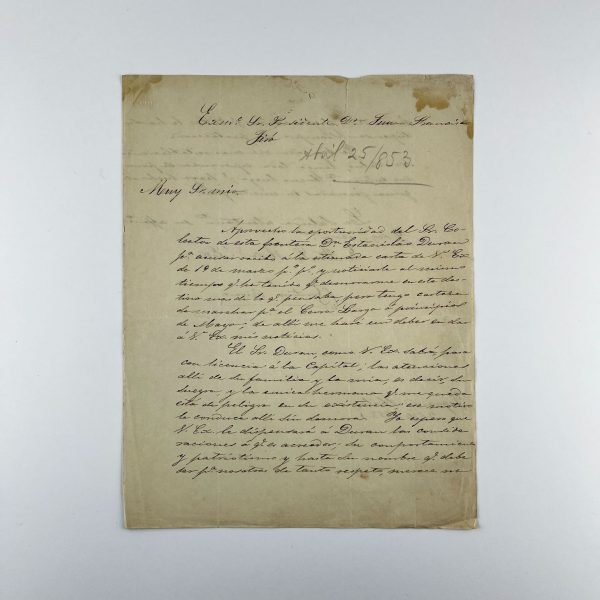 Exmo. Sr. Presidente Dn. Juan Francisco
Giró
Abril 25/853.
Muy Sr. mio
Aprovecho la oportunidad del Sr. Co-
lector de esta frontera Dn. Estanislao Duran
pa. acusar recibo a la estimada carta de V. Ex.
de 1º de marzo po. po. y noticiarle al mismo
tiempo qe. he tenido qe. demorarme en este des-
tino mas de lo qe. pensaba, pero tengo
de marchar pa. el Cerro Largo á principios
de Mayo; de alli me haré un deber en dar
á V. Ex. mis noticias.
El Sr. Duran, como V. Ex. sabrá, pasa
con licencia á la Capital, las atenciones
alli de su familia y la mia, es decir, su
suegra y la unica hermana qe. me queda
está de peligro en su existencia es motivo
le conduce alli sin demora. Yo espero que
V. Ex. le dispensará á Duran las conside-
raciones á qe. es acreedor, su comportamiento
y patriotismo y hasta su nombre qe. debe
ser pa. nosotros de tanto respeto, merece